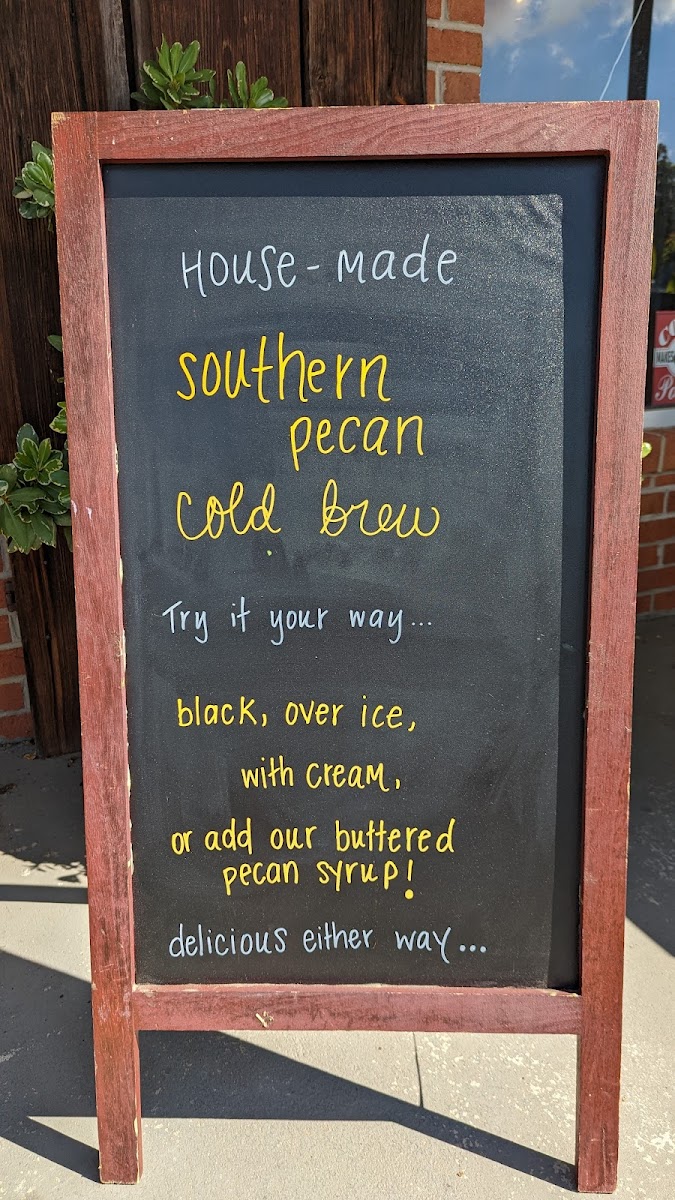 HOUSE-MADE
southern
pecan
cold brew
Try it your way...
black, over ice,
with cream,
or add our buttered
pecan syrup!
delicious either way...